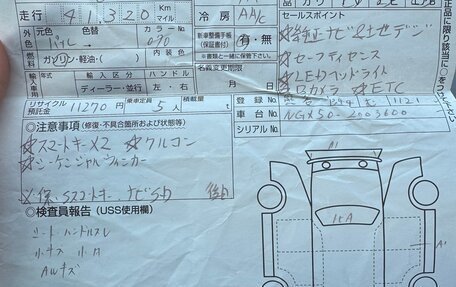 走行 41,320 Km マイル
冷房 AAC
セールスポイント
外色 元色 パール 色替 カラーNo 070
内装色
新車整備手帳(保証書付) 有・無
※書類と一緒に保管して下さい。
☆純正ナビ&地デジ
☆セーフティセンス
☆LEDヘッドライト
☆Bカメラ ☆ETC
燃料 ガソリン・軽油・( )
名義変更期限
月 日
輸入車用 輸入区分 ディーラー・並行 ハンドル 左・右
リサイクル預託金 11270円 乗車定員 5人 積載量 t
登録No 1121
車台No NGX50-2003600
シリアルNo
◎注意事項(修復・不具合箇所および状態等)
☆スマートキー×2 ☆クルコン
☆シーケンシャルウィンカー
保、Sスマートキー、ナビSD 後日
◎検査員報告(USS使用欄)
シート ハンドルスレ
小キズ 小凹
AWキズ
A1
A1